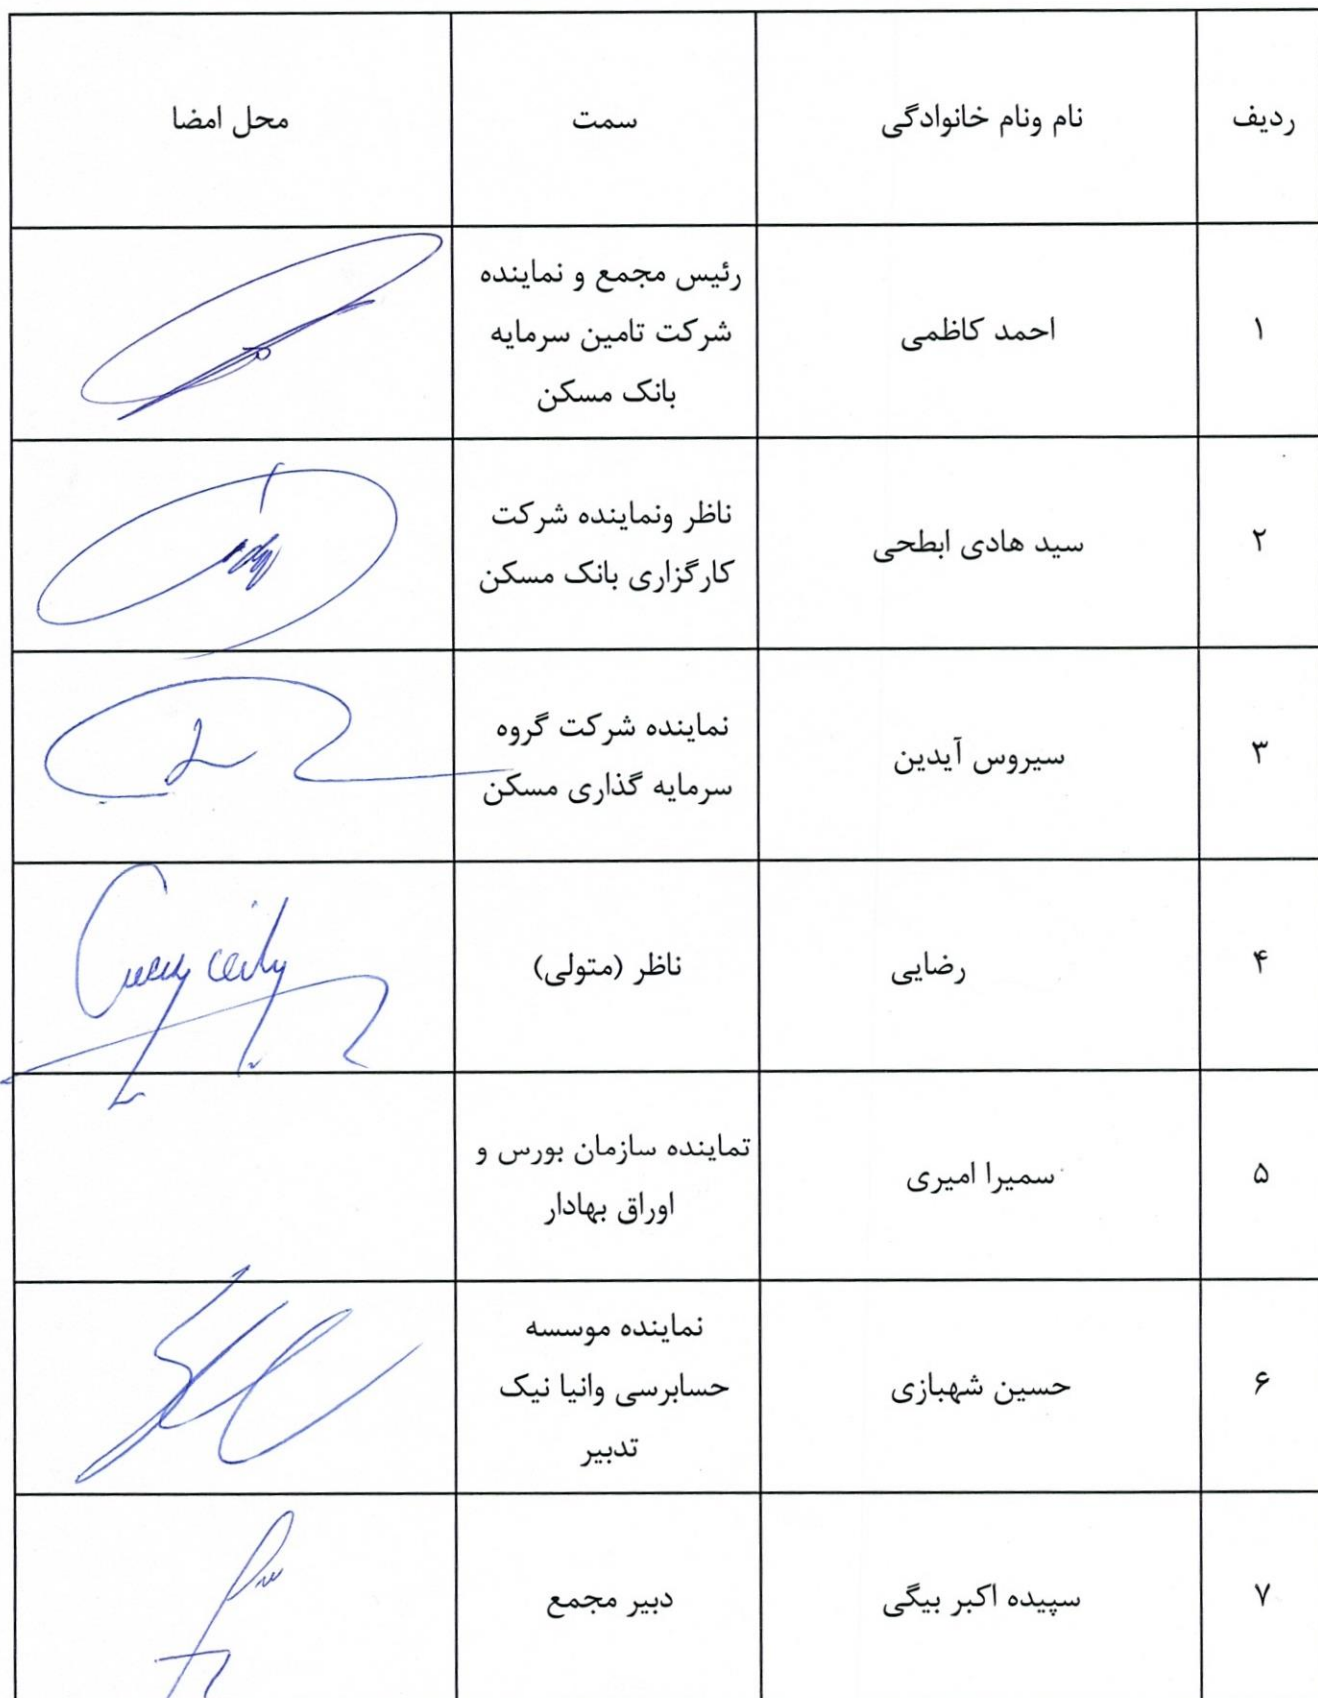 ردیف
نام ونام خانوادگی
سمت
محل امضا
۱
احمد کاظمی
رئیس مجمع و نماینده
شرکت تامین سرمایه
بانک مسکن
۲
سید هادی ابطحی
ناظر ونماینده شرکت
کارگزاری بانک مسکن
۳
سیروس آیدین
نماینده شرکت گروه
سرمایه گذاری مسکن
۴
رضایی
ناظر (متولی)
۵
سمیرا امیری
تماینده سازمان بورس و
اوراق بهادار
۶
حسین شهبازی
نماینده موسسه
حسابرسی وانیا نیک
تدبیر
۷
سپیده اکبر بیگی
دبیر مجمع